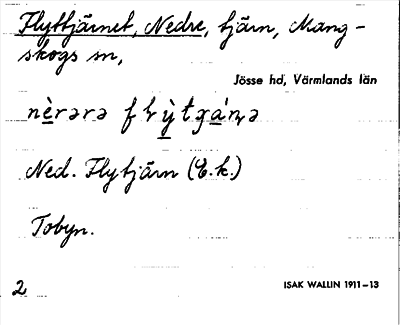 Flyttjärnet, Nedre, tjärn, Mang-
skogs sn,
Jösse hd, Värmlands län
Ned. Flytjärn (E.k.)
Tobyn.
2 ISAK WALLIN 1911–13